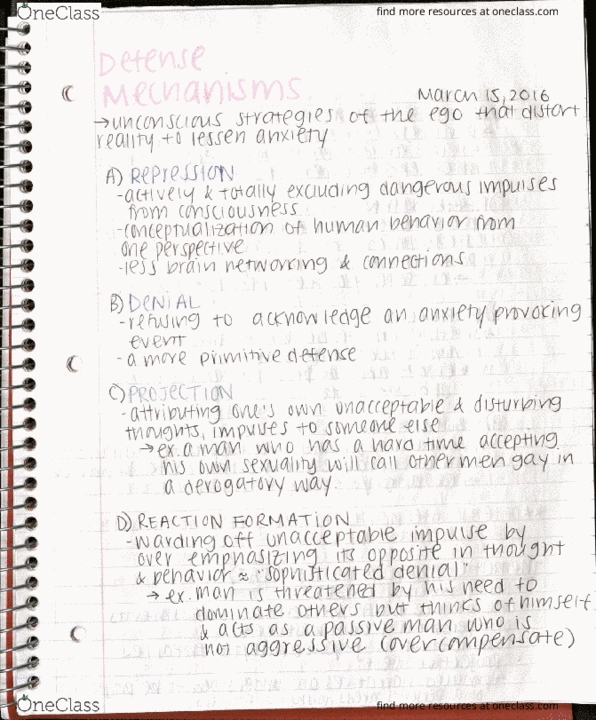 OneClass
find more resources at oneclass.com
Defense
Mechanisms
March 15, 2016
→unconscious strategies of the ego that distort
reality to lessen anxiety
A) REPRESSION
-actively & totally excluding dangerous impulses
from consciousness
-conceptualization of human behavior from
one perspective
-less brain networking & connections
B) DENIAL
-refusing to acknowledge an anxiety provoking
event
-a more primitive defense
C) PROJECTION
-attributing one's own unacceptable & disturbing
thoughts, impulses to someone else
→ex. a man who has a hard time accepting
his own sexuality will call other men gay in
a derogatory way
D) REACTION FORMATION
-warding off unacceptable impulse by
over emphasizing its opposite in thought
& behavior ≈ "sophisticated denial"
→ ex. man is threatened by his need to
dominate others but thinks of himself
& acts as a passive man who is
not aggressive (overcompensate)
OneClass
find more resources at oneclass.com